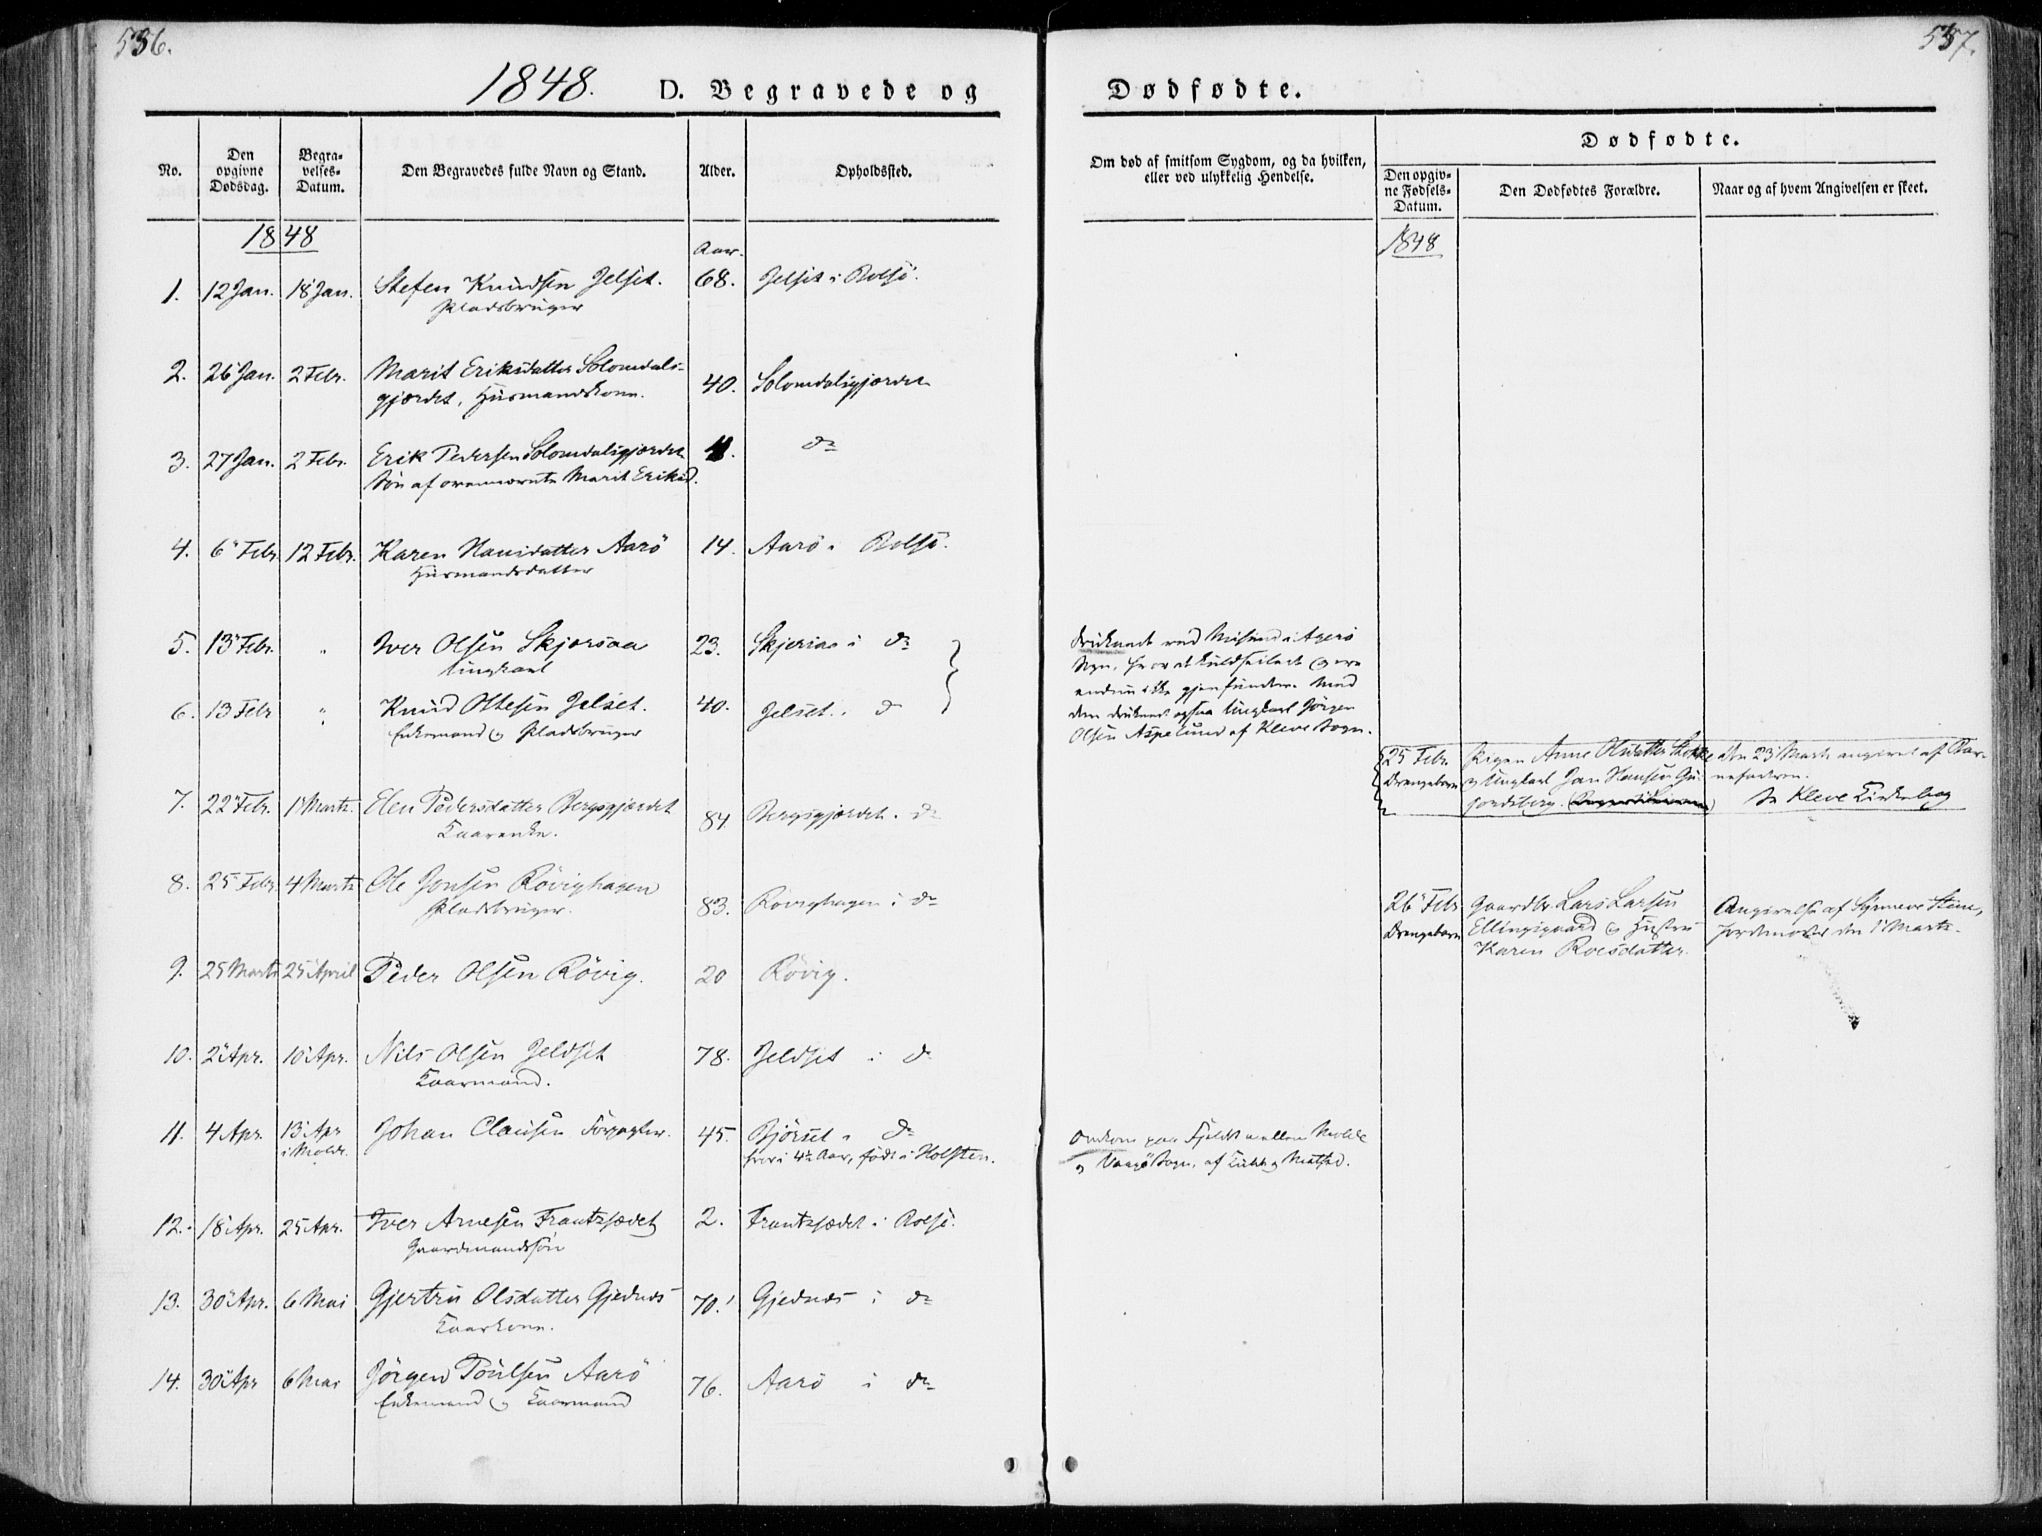 536.
537.
1848. D. Begravede og
Dødfødte.
No.
Den opgivne Dødsdag.
Begravelses-Datum.
Den Begravedes fulde Navn og Stand.
Alder.
Opholdssted.
Om død af smitsom Sygdom, og da hvilken, eller ved ulykkelig Hendelse.
Dødfødte.
Den opgivne Fødsels-Datum.
Den Dødfødtes Forældre.
Naar og af hvem Angivelsen er skeet.
1848
Aar.
1848
1. 12 Jan. 18 Jan. Stefen Knudsen Jelset. 68. Jelset i Bolsø.
Pladsbruger
2. 26 Jan. 2 Febr. Marit Eriksdatter Solomdals-
gjærdet, Huusmandskone. 40. Solomdalsgjærdet
3. 27 Jan. 2 Febr. Erik Pedersen Solomdalsgjærdet do
Søn af ovennævnte Marit Eriksd.
4. 6 Febr 12 Febr. Karen Hansdatter Aarö 14. Aarö i Bolsö.
Huusmandsdatter
5. 13 Febr. " Iver Olsen Skjørsaa 23. i do
Ungkarl
6. 13 Febr " Knud Oltesen Jelset. 40. Jelset i do
Enkemand og Pladsbruger
druknede ved i Agerö
Sogn, ved Kuldseilads og ere
endnu ikke gjenfundne. Med
dem druknede ogsaa Ungkarl Jörgen
Olsen Aspelund af Kleve Sogn.
25 Febr.
Drengebarn
Pigen Anne Olsdatter
og Ungkarl Jan Hansen
den 23 Marts angivet af Bar-
nefaderen.
Se Kleve Kirkebog
7. 22 Febr. 1 Marts. Elen Pedersdatter Bergsgjærdet 84. Bergsgjærdet i do
Kaarenke.
8. 25 Febr. 4 Marts Ole Jonsen Rövighagen 83. Rövighagen i do
Pladsbruger.
26 Febr
Drengebarn
Gaardbr. Lars Larsen
Ellingsgaard og Hustru
Karen Roesdatter.
Angivelse af Synneve Stene,
Jordmoder den 1 Marts.
9. 25 Marts 25 April Peder Olsen Rövig. 20 Rövig.
10. 2 Apr. 10 Apr. Nils Olsen Jeldset 78. Jeldset i do
Kaarmand.
11. 4 Apr. 13 Apr i Molde. Johan Clausen Forpagter. 45. Bjørset i do
her i 4½ Aar, født i Holsten.
Omkom paa Fjeldet mellem Molde
og Vaagö Sogn, af Kulde og
12. 18 Apr. 25 Apr. Iver Arnesen Frantssædet 2. Frantssædet i Bolsö.
Gaardmandssøn
13. 30 Apr. 6 Mai Gjertru Olsdatter Gjednæs 70. Gjednæs i do
Kaarkone.
14. 30 Apr 6 Mai Jörgen Poulsen Aarö 76. Aarö i do
Enkemand og Kaarmand